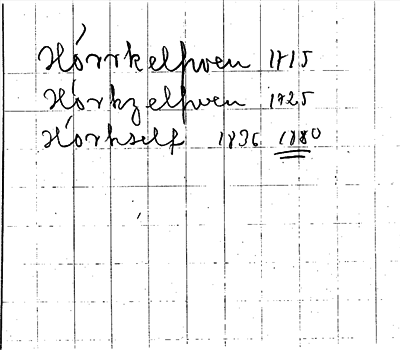 Hórrkelfwen 1715
Hórkzelfwen 1725
Hórkself 1836 1880